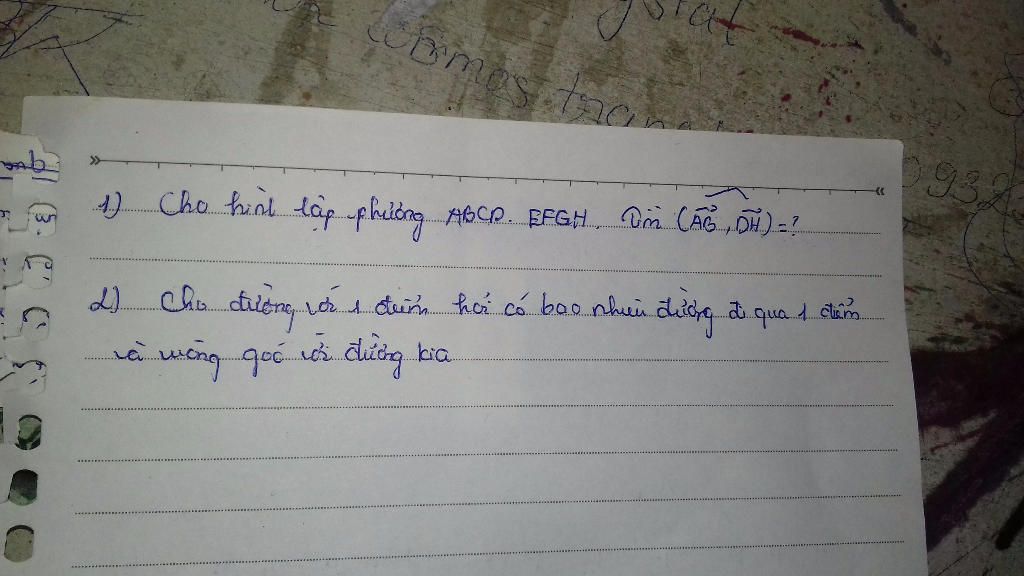 ystal
cosmos trang
0932
1) Cho hình lập phương ABCD. EFGH. Tìm (AG, DH) = ?
2) Cho đường với 1 điểm hỏi có bao nhiêu đường đi qua 1 điểm
và vuông góc với đường kia